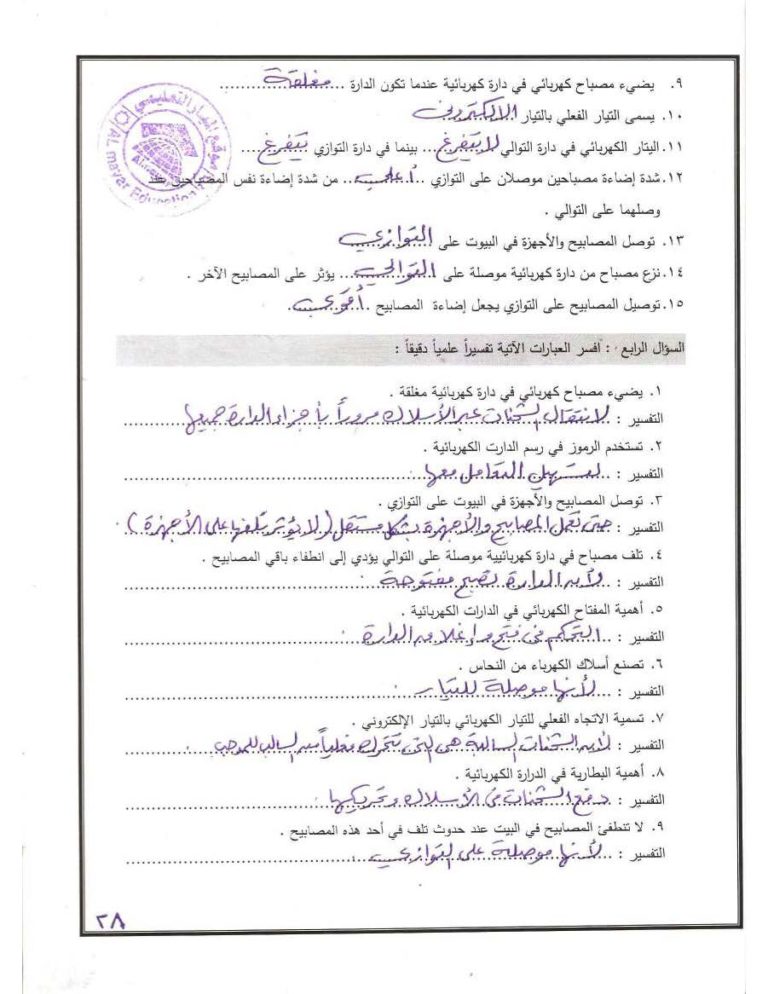 ٩. يضيء مصباح كهربائي في دارة كهربائية عندما تكون الدارة ...مغلقة...
١٠. يسمى التيار الفعلي بالتيار الالكتروني
١١. اليتار الكهربائي في دارة التوالي لا يتفرغ... بينما في دارة التوازي يتفرغ...
١٢. شدة إضاءة مصباحين موصلان على التوازي ..أعلى... من شدة إضاءة نفس المصباحين عند
وصلهما على التوالي .
١٣. توصل المصابيح والأجهزة في البيوت على التوازي
١٤. نزع مصباح من دارة كهربائية موصلة على التوالي... يؤثر على المصابيح الآخر .
١٥. توصيل المصابيح على التوازي يجعل إضاءة المصابيح .أقوى...
السؤال الرابع : افسر العبارات الآتية تفسيراً علمياً دقيقاً :
١. يضيء مصباح كهربائي في دارة كهربائية مغلقة .
التفسير : لانتقال الشحنات عبر الأسلاك مروراً بأجزاء الدارة جميعها
٢. تستخدم الرموز في رسم الدارت الكهربائية .
التفسير : لتسهيل التعامل معها.
٣. توصل المصابيح والأجهزة في البيوت على التوازي .
التفسير : حتى تعمل المصابيح والأجهزة بشكل مستقل (لا يؤثر تلفها على الأجهزة) .
٤. تلف مصباح في دارة كهربائيية موصلة على التوالي يؤدي إلى انطفاء باقي المصابيح .
التفسير : لأن الدارة تصبح مفتوحة .
٥. أهمية المفتاح الكهربائي في الدارات الكهربائية .
التفسير : التحكم في فتح وإغلاق الدارة .
٦. تصنع أسلاك الكهرباء من النحاس .
التفسير : لأنها موصلة للتيار .
٧. تسمية الاتجاه الفعلي للتيار الكهربائي بالتيار الإلكتروني .
التفسير : لأن الشحنات السالبة هي التي تتحرك فعلياً من السالب للموجب .
٨. أهمية البطارية في الدرارة الكهربائية .
التفسير : دفع الشحنات في الأسلاك وتحريكها .
٩. لا تنطفئ المصابيح في البيت عند حدوث تلف في أحد هذه المصابيح .
التفسير : لأنها موصلة على التوازي .
٢٨